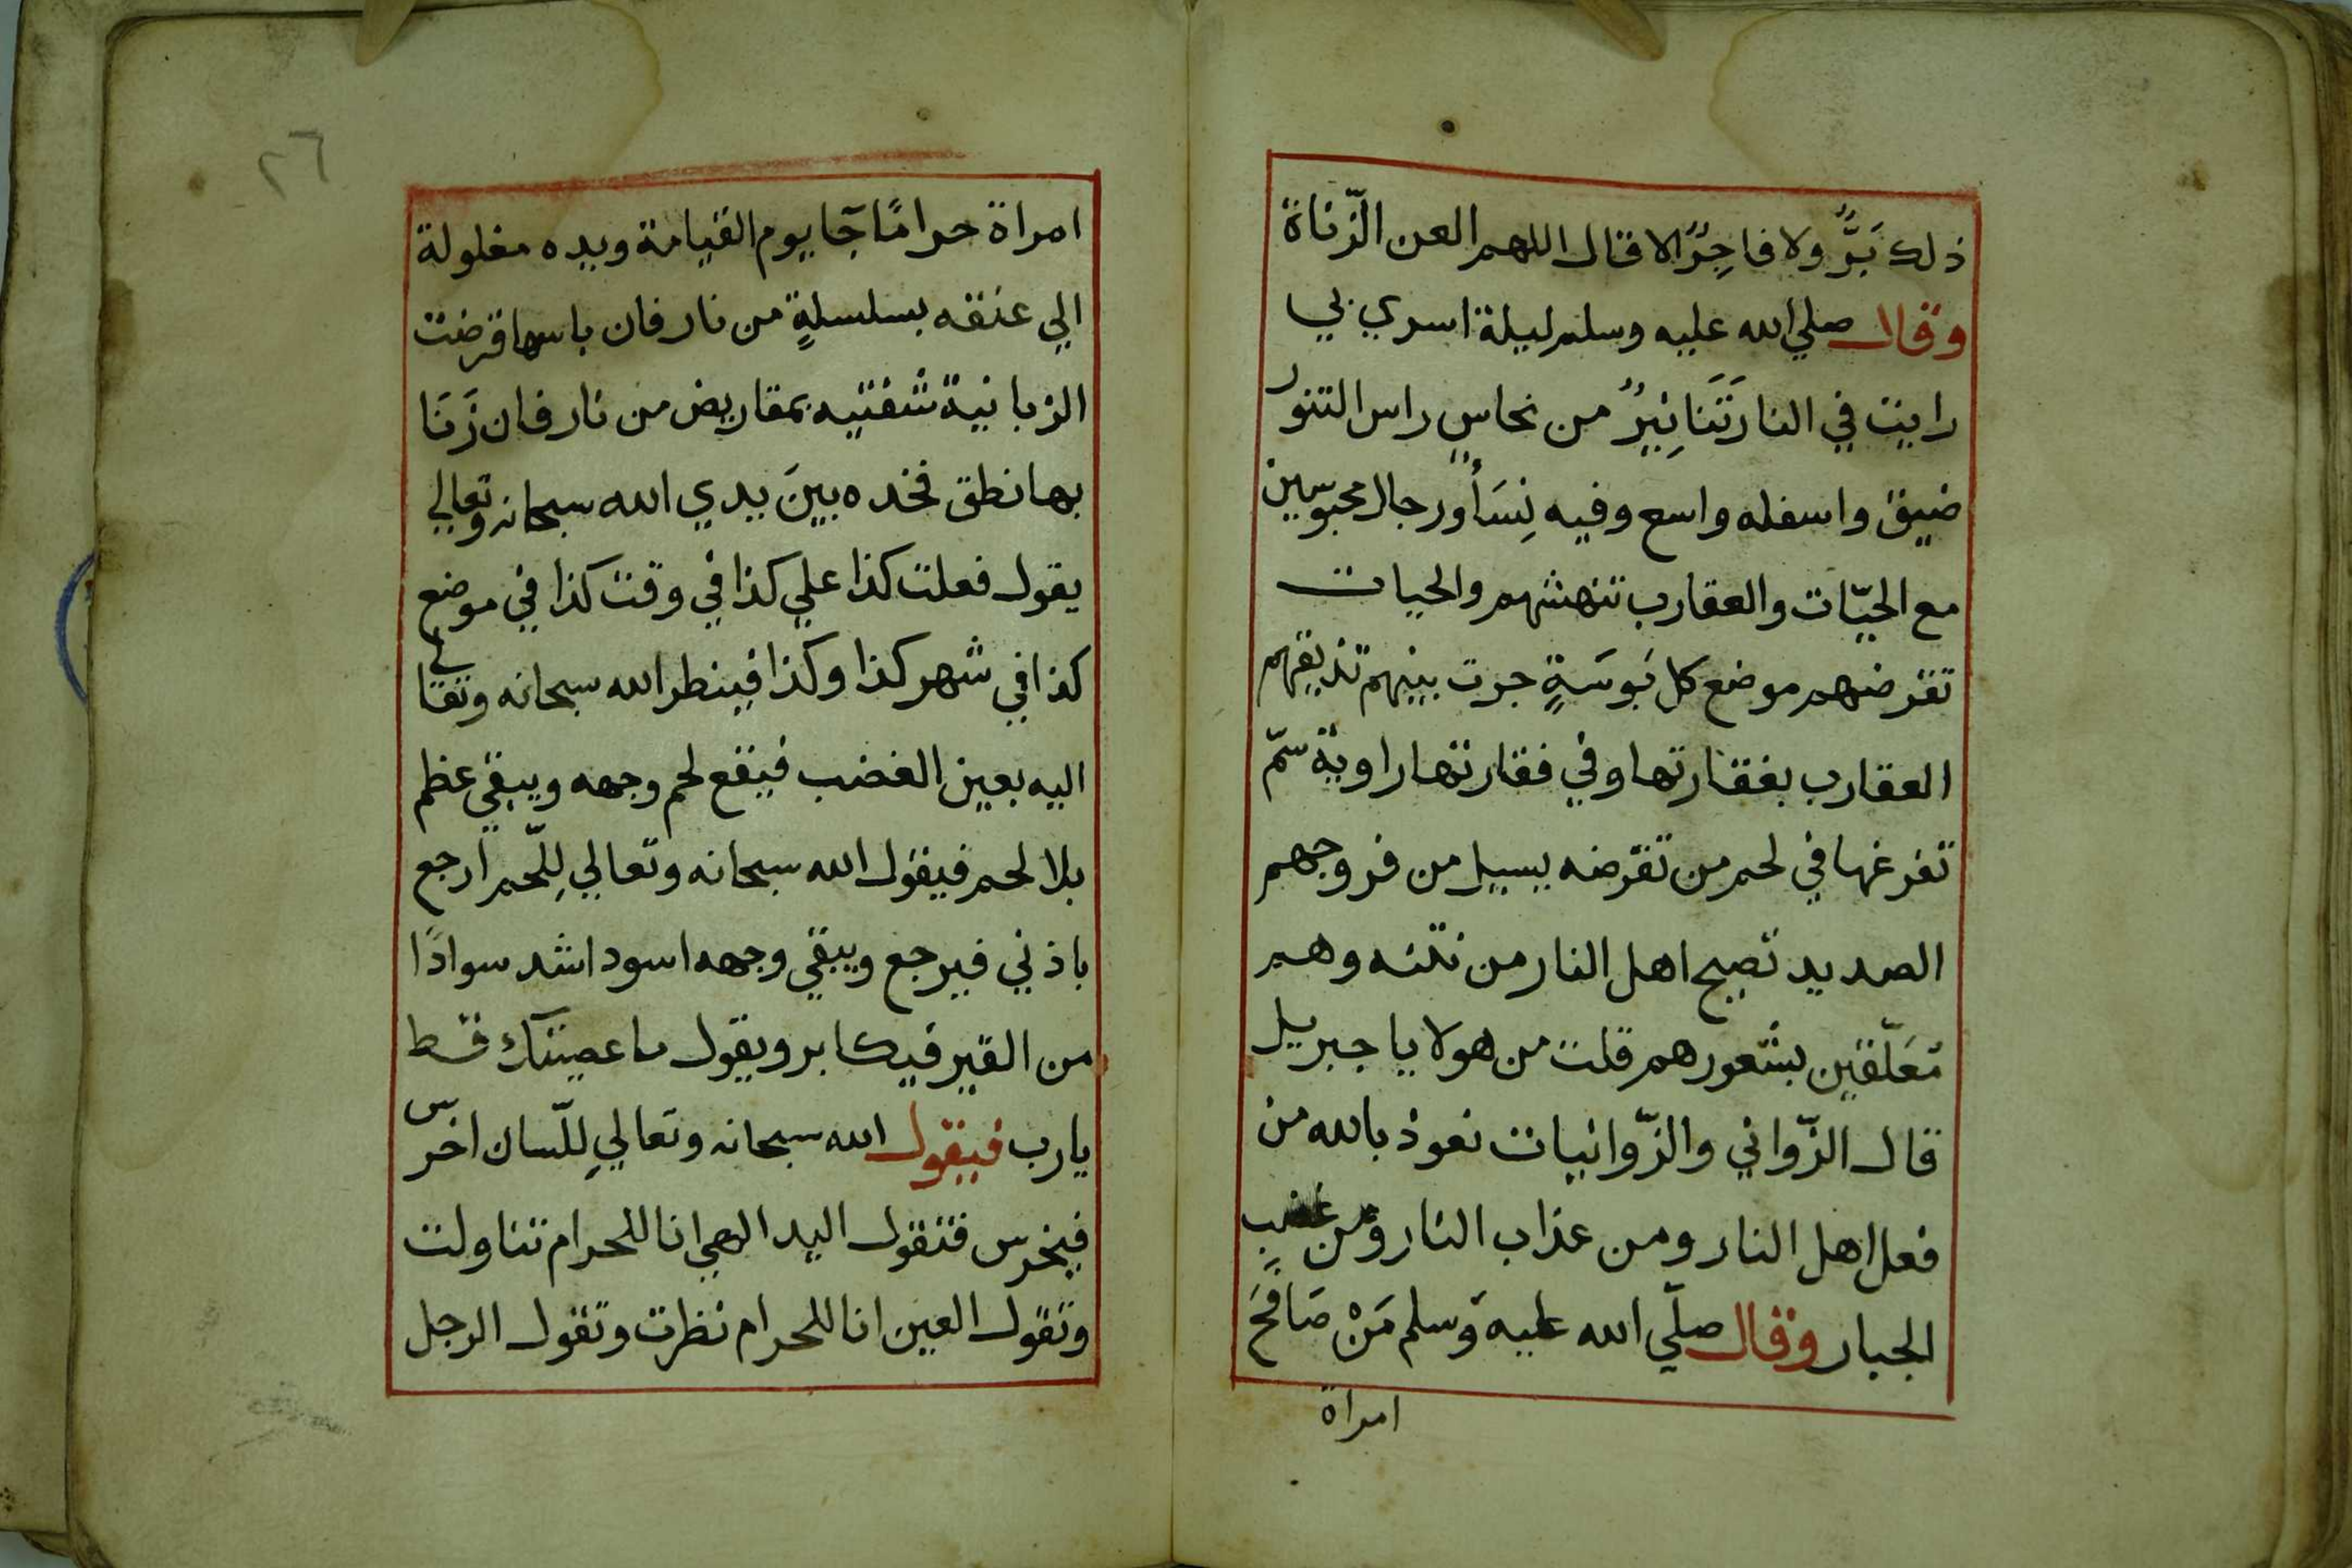 ذلك بَرٌّ ولا فاجِرٌ الا قال اللهم العن الزّناة
وقال صلي الله عليه وسلم ليلة اسري بي
رايت في النار تَنَانِيرٌ من نحاسٍ راس التنور
ضيق واسفله واسع وفيه نِسَأٌ ورجال محبوسين
مع الحيّات والعقارب تنهشهم والحيات
تقرضهم موضع كل بَوسَةٍ جرت بينهم تذيقهم
العقارب بفقارتها وفي فقارتها راوية سمّ
تفرغها في لحم من تقرضه يسيل من فروجهم
الصديد تصيح اهل النار من نتنه وهم
مُعَلّقين بشعورهم قلت من هولا يا جبريل
قال الزّواني والزّوانيات نعوذ بالله من
فعل اهل النار ومن عذاب النار ومن غضب
الجبار وقال صلّي الله عليه وسلم مَنْ صَافَحَ
امراة
٢٦
امراة حرامًا جآ يوم القيامة ويده مغلولة
الي عنقه بسلسلةٍ من نار فان باسها قرضت
الزبانية شفتيه بمقاريض من نار فان زَنَا
بها نطق فخده بينَ يدي الله سبحانه وتعالي
يقول فعلت كذا علي كذا في وقت كذا في موضع
كذا في شهر كذا وكذا فينظر الله سبحانه وتعالي
اليه بعين الغضب فيقع لحم وجهه ويبقي عظم
بلا لحم فيقول الله سبحانه وتعالي لِلّحم ارجع
باذني فيرجع ويبقي وجهه اسود اشد سوادًا
من القير فيكابر ويقول ما عصيتك قط
يارب فيقول الله سبحانه وتعالي لِلّسان اخرس
فيخرس فتقول اليد الهي انا للحرام تناولت
وتقول العين انا للحرام نظرت وتقول الرجل